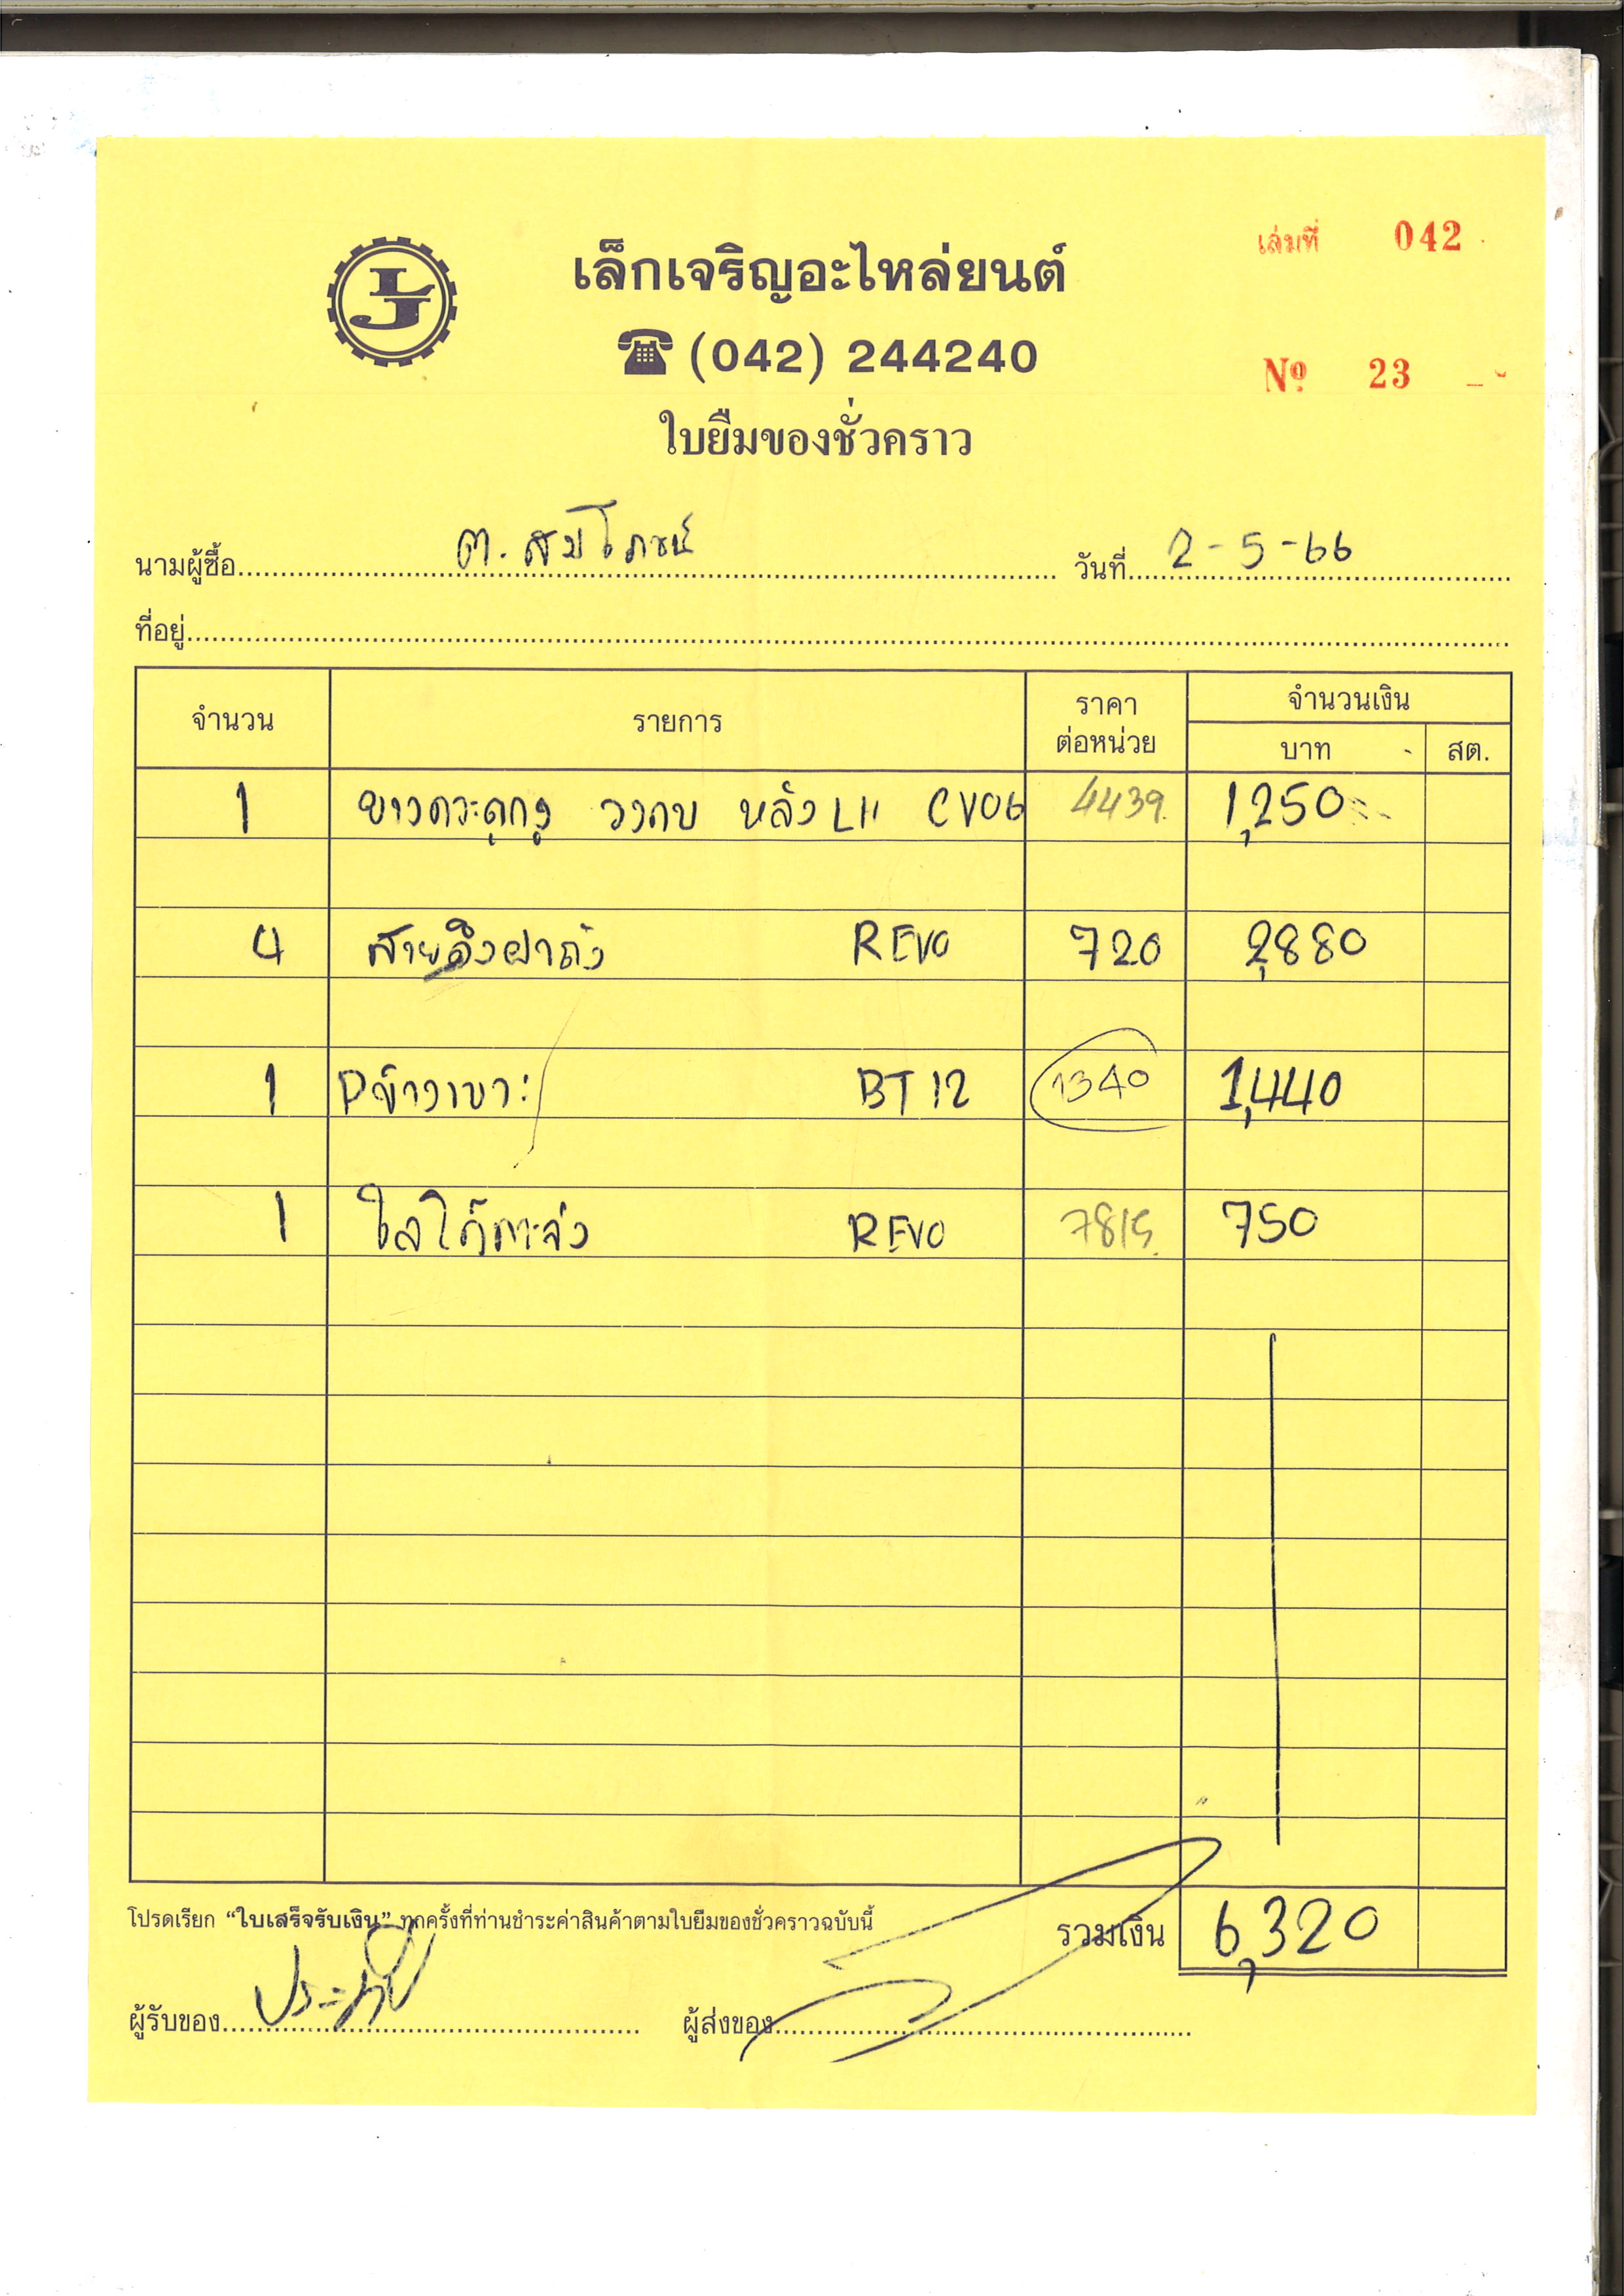 เล่มที่ 042
เล็กเจริญอะไหล่ยนต์
LJ
(042) 244240
Nº 23
ใบยืมของชั่วคราว
นามผู้ซื้อ ต. สมโภชน์ วันที่ 2-5-66
ที่อยู่
จำนวน รายการ ราคาต่อหน่วย จำนวนเงิน
บาท สต.
1 ยางกระดูกงู วงกบ หลัง LH CV06 4439. 1,250
4 สายดึงฝาถัง REVO 720 2,880
1 Pข้างเบาะ BT 12 1340 1,440
1 REVO 7815. 750
โปรดเรียก “ใบเสร็จรับเงิน” ทุกครั้งที่ท่านชำระค่าสินค้าตามใบยืมของชั่วคราวฉบับนี้ รวมเงิน 6,320
ผู้รับของ ผู้ส่งของ